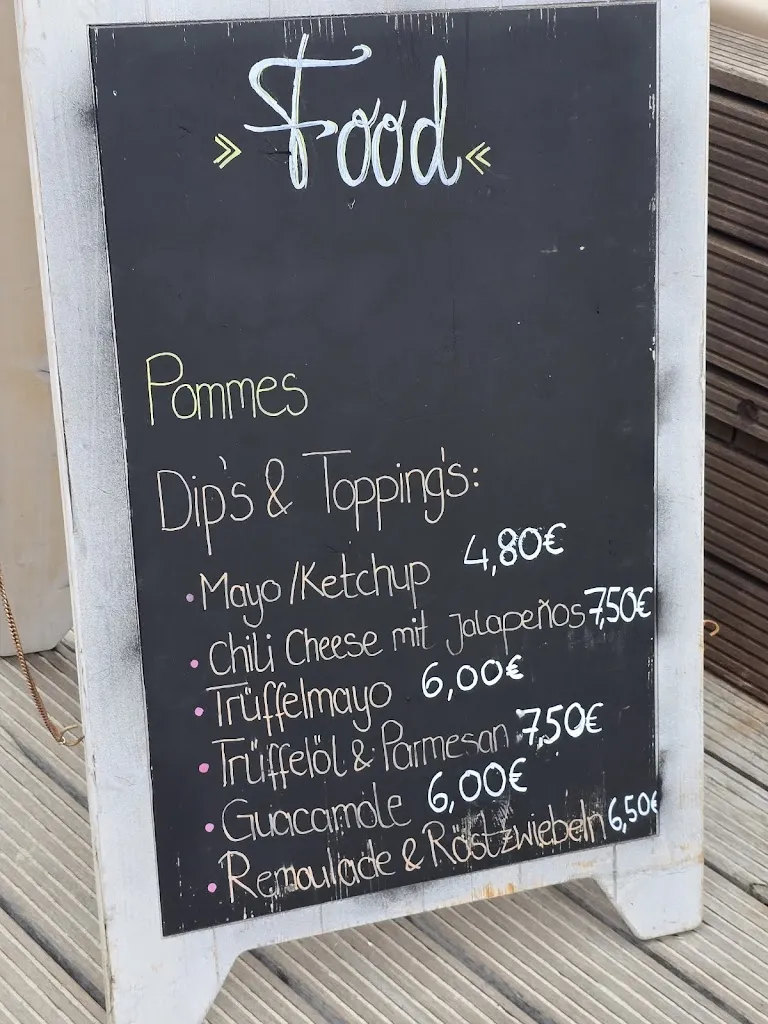 » Food «
Pommes
Dip's & Topping's:
• Mayo/Ketchup 4,80€
• Chili Cheese mit Jalapeños 7,50€
• Trüffelmayo 6,00€
• Trüffelöl & Parmesan 7,50€
• Guacamole 6,00€
• Remoulade & Röstzwiebeln 6,50€